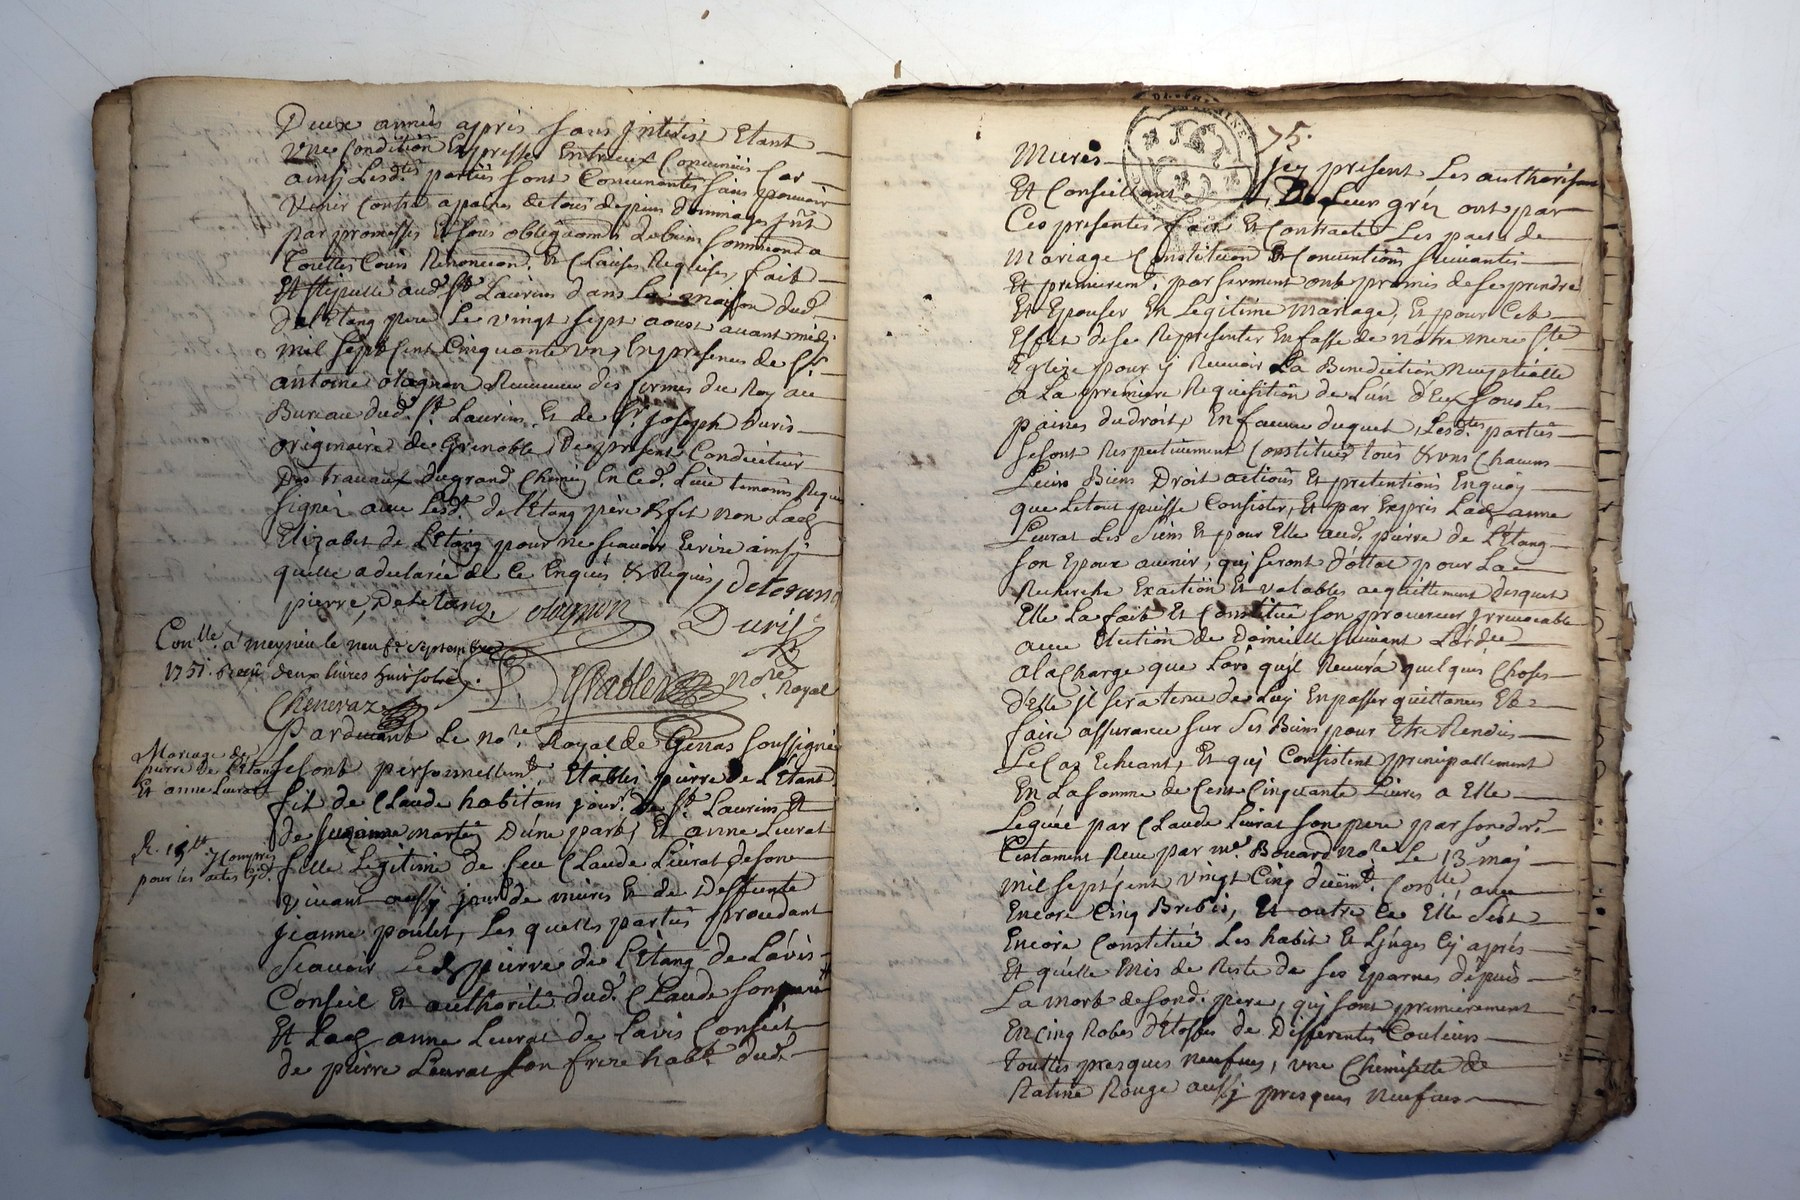 Deux années apprés sans jnterist Etant
Une Condition Expresse Entreux Convenües Car
ainsi Lesd.tes parties sont Convenantes sans pouvoir
Venir Contre a paines de tous depens dommages jnt
par promesses Et sous obligaõns de biens soumiõnd a
touttes Cours Renonciaõnd. Et Clauses Requises, fait
Et stipullé aud. St. Laurens dans La maison dud.
de Letang pere Le vingt sept aoust avant midi
mil sept Cent Cinquante un, En presence de Sr.
antoine olagnon Receveur des fermes du Roy au
Bureau dud. St. Laurins, Et de Sr. joseph Duris
originaire de Grenoble, De present Conducteur
Des travaux du grand Chemin En Ced. Lieu temoins Requis
signés avec Lesd. de Létang père & fit non Lad.
Elizabet de Létang pour ne sçavoir Ecrire ainsy
quelle a declarée de Ce Enquis & Requis,
pierre, De Letang olagnon Duris
Con.lle a meyzieu le neuf.e Septembre
1751. Recu deux livres huit sols
nore. Royal
Chenevaz
Pardevant Le no.re Royal de Genas soussigné
Mariage de
pierre de Létang
Et anne Leurat
se sont personnellem.t Etablis pierre de Létant
fit de Claude habitans jour.r de St. Laurins Et
de suzanne marte D'une part, Et anne Leurat
R. 15tt
y Compris
pour les actes
fille Legitime de feu Claude Leurat de son
vivant aussy jour.r de mures Et de Deffunte
jeanne poulet, Les quelles parties procedant
sçavoir Led. pierre de Létang de Lávis
Conseil Et authorité dud. Claude son pere
Et Lad. anne Leurat de Lavis Conseil
de pierre Leurat son frere hab.t dud.
75.
Mures jcy present Les authorisant
Et Conseillant, De Leur gréz ont par
Ces presentes fait Et Contracté Les pactes de
Mariage Constitution & Conventions suivantes
Et premierem.t par serment ont promis de se prendre
Et Epouser En Legitime Mariage, Et pour Cet
Effet de se Representer En fasse de notre mere Ste
Eglize pour y Recevoir La Benediction Nuptialle
a La premiere Requisition de L'un d'Eux sous Les
paines du droit, En faveur duquel, Lesd.tes parties
se sont Respectivement Constitués tous & uns Chacuns
Leurs Biens Droit actions Et pretentions En quoy
que Le tout puisse Consister, Et par Exprés Lad. anne
Leurat Les siens Et pour Elle aud. pierre de Létang
son Epoux avenir, qui seront d'ottat pour La
Recherche Exaction Et valables acquittement desquels
Elle La fait Et Constitué son procureur jrrevocable
avec Election de Domicille suivant Lordre
a la Charge que Lors qu'il Recevra quelques Choses
d'Elle jl sera tenu de Luy En passer quittances Et
faire assurance sur ses Biens pour Etre Rendues
Le Cas Echeant, Et qui Consistent principallement
En La somme de Cent Cinquante Livres a Elle
Leguée par Claude Leurat son pere par son der.
Testament Receu par m.e Bouard no.re Le 13 may
mil sept Cent vingt Cinq düem.t Con.lle, avec
Encore Cinq Brebis, Et outre ce Elle sest
Encore Constitué Les habit Et Linges Cy aprés
Et quelle Mis de Reste de ses Eparnes depuis
La mort de sond. pere, qui sont premierement
En Cinq Robes d'étoffes de Differentes Couleurs
touttes presques neufves, une Chemisette de
Ratine Rouge aussy presques neufves